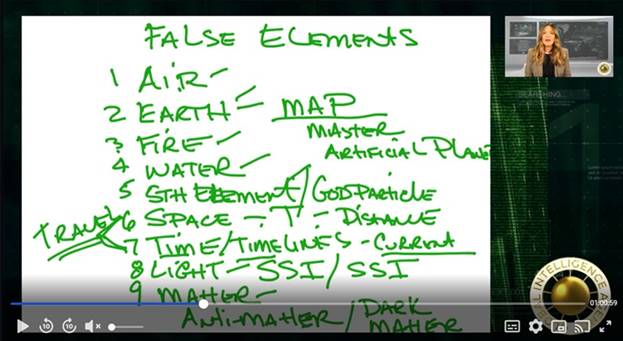 FALSE ELEMENTS
1 AIR
2 EARTH = MAP
MASTER
ARTIFICIAL PLANE
3 FIRE
4 WATER
5 5TH ELEMENT/GOD PARTICLE
TRAVEL
6 SPACE - T - DISTANCE
7 TIME/TIMELINES - CURRENT
8 LIGHT - SSI/SSI
9 MATTER -
ANTI-MATTER/DARK
MATTER
SEARCHING...
INTELLIGENCE
01:00:59
10
10